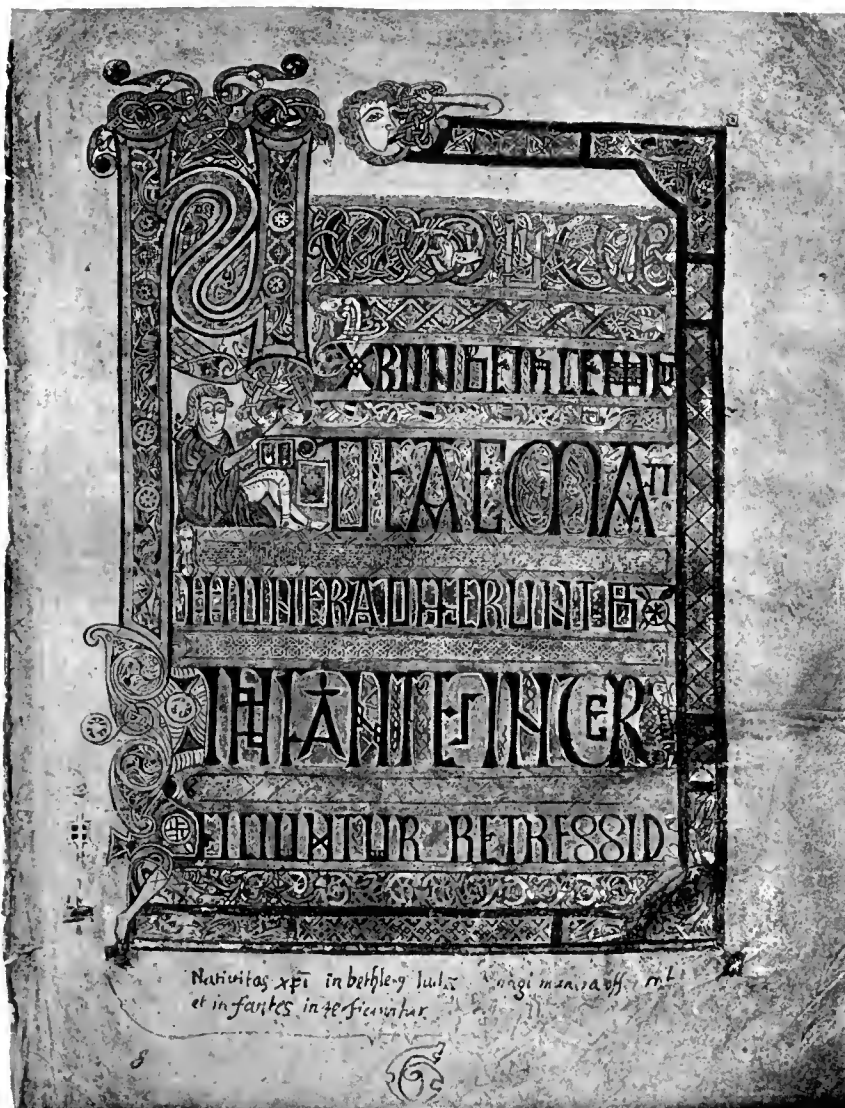 NATIVITAS
XPI IN BETHLEM
DEAE MA
MUNERA OFFERUNT ET
INFANTES INTER
FICIUNTUR REGRESSIO
Nativitas xpi in bethlem Iudæ magi munera
et infantes interficiuntur
8